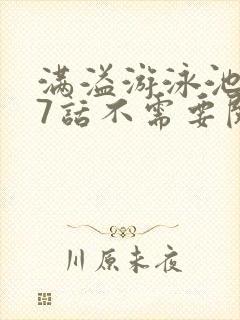 满溢游泳池
7話不需要
川原未夜